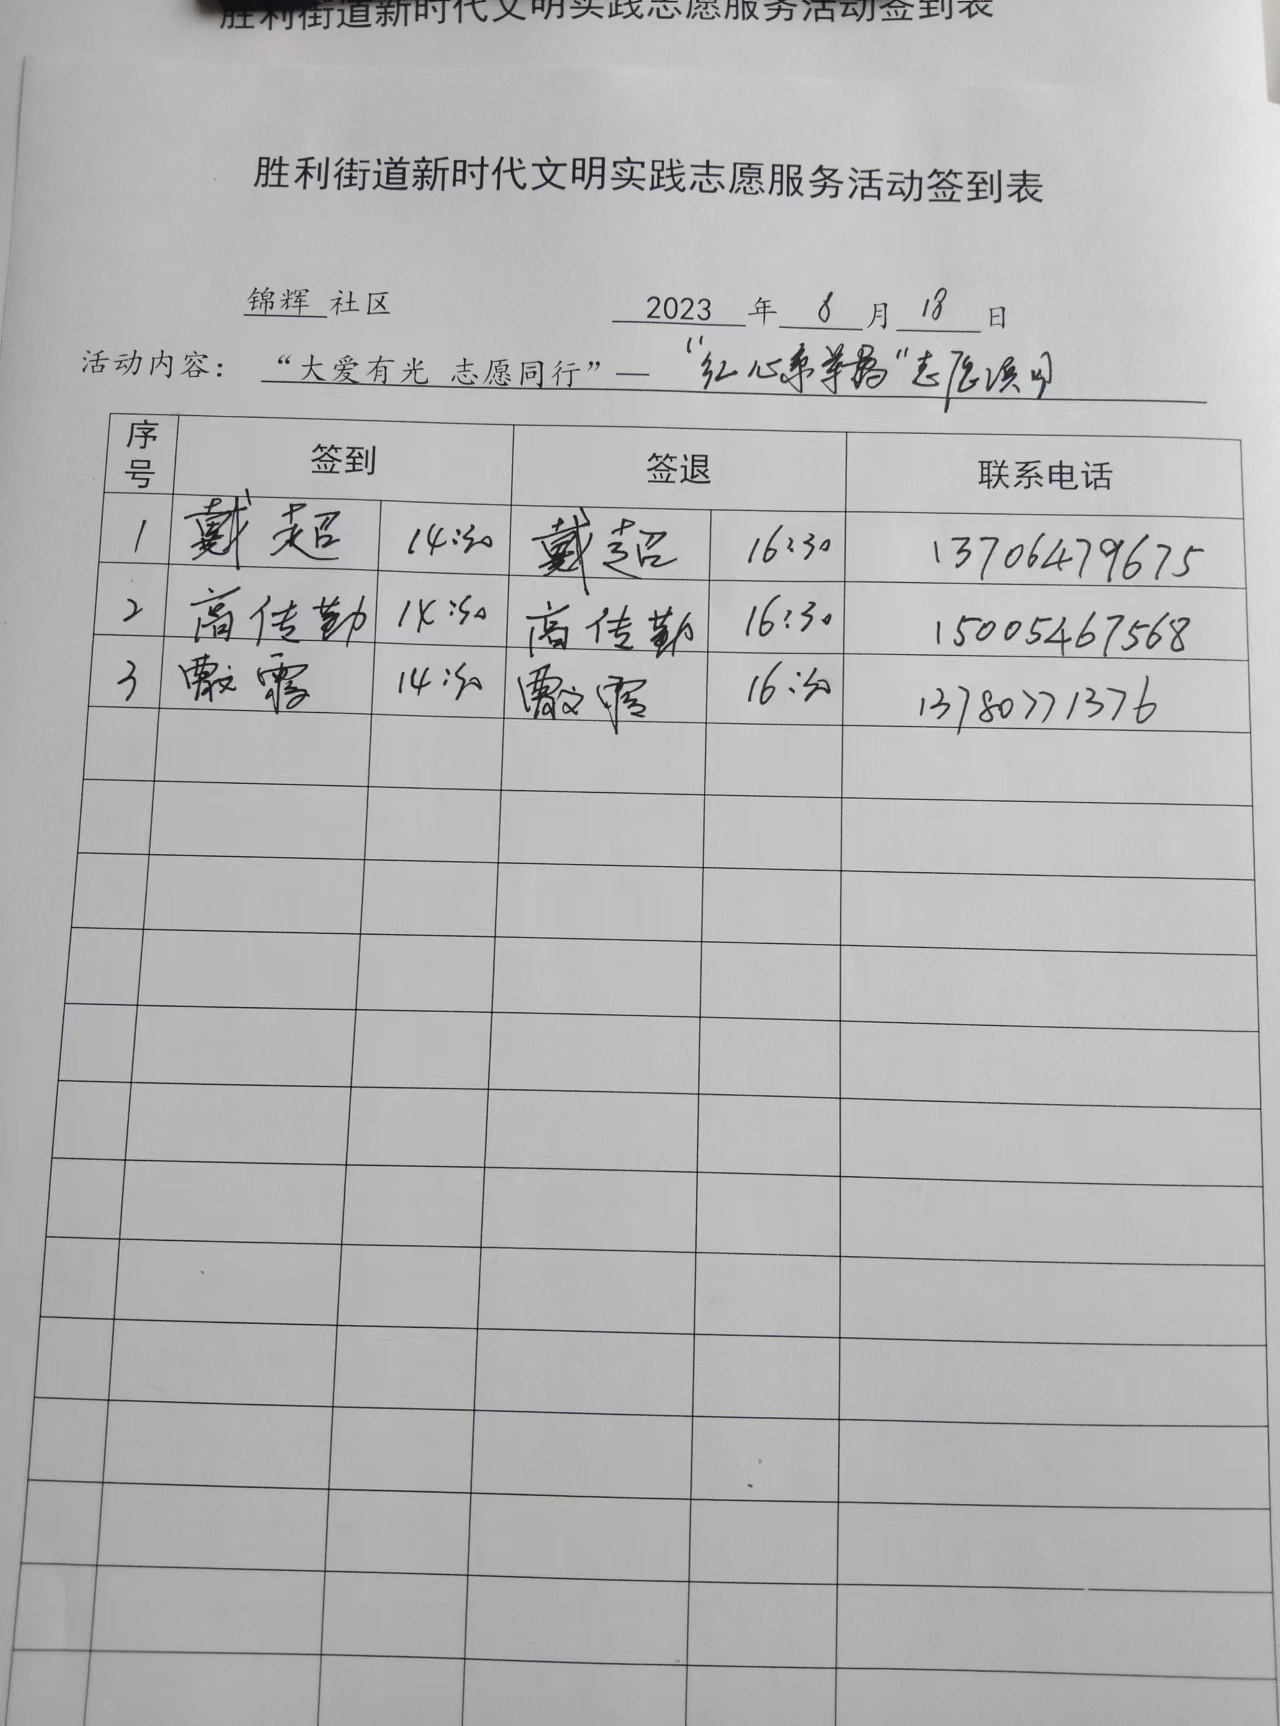 胜利街道新时代文明实践志愿服务活动签到表
胜利街道新时代文明实践志愿服务活动签到表
锦辉 社区 2023 年 8 月 18 日
活动内容： “大爱有光 志愿同行”— “红心系 ”志愿
序号 签到 签退 联系电话
1 戴超 14:30 戴超 16:30 13706479675
2 高传勤 14:30 高传勤 16:30 15005467568
3 霞 14:30 霞 16:30 13780771376